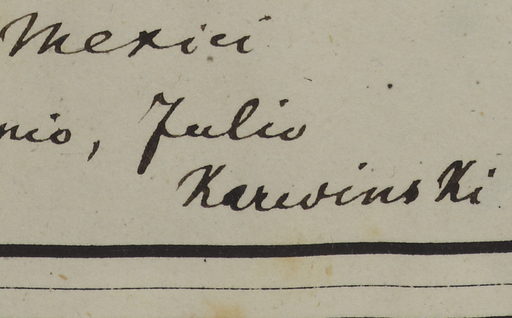 Mexici
nio, Julio
Karwinski